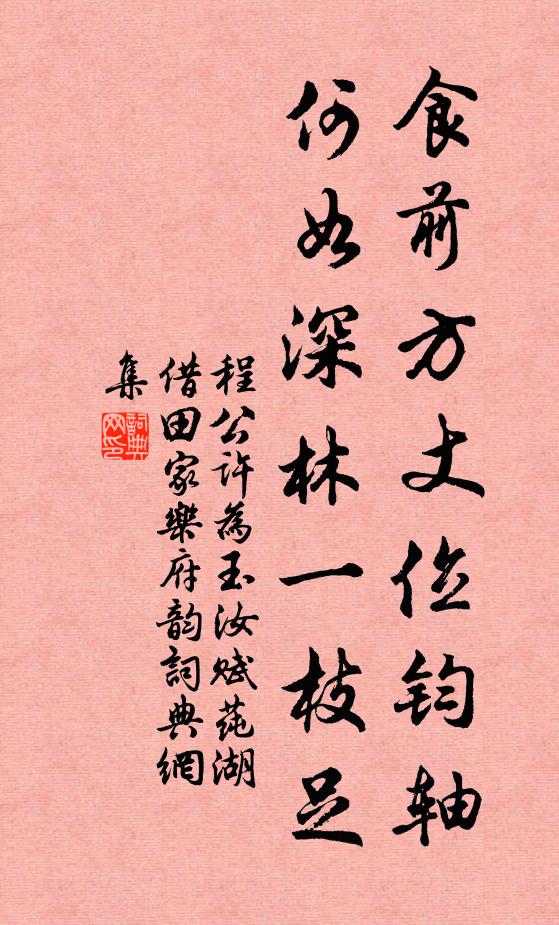 食前方丈位钧轴
何如深林一枝足
程公许為玉汝赋莼湖
借田家樂府韵詞典網
集
詞典
网印